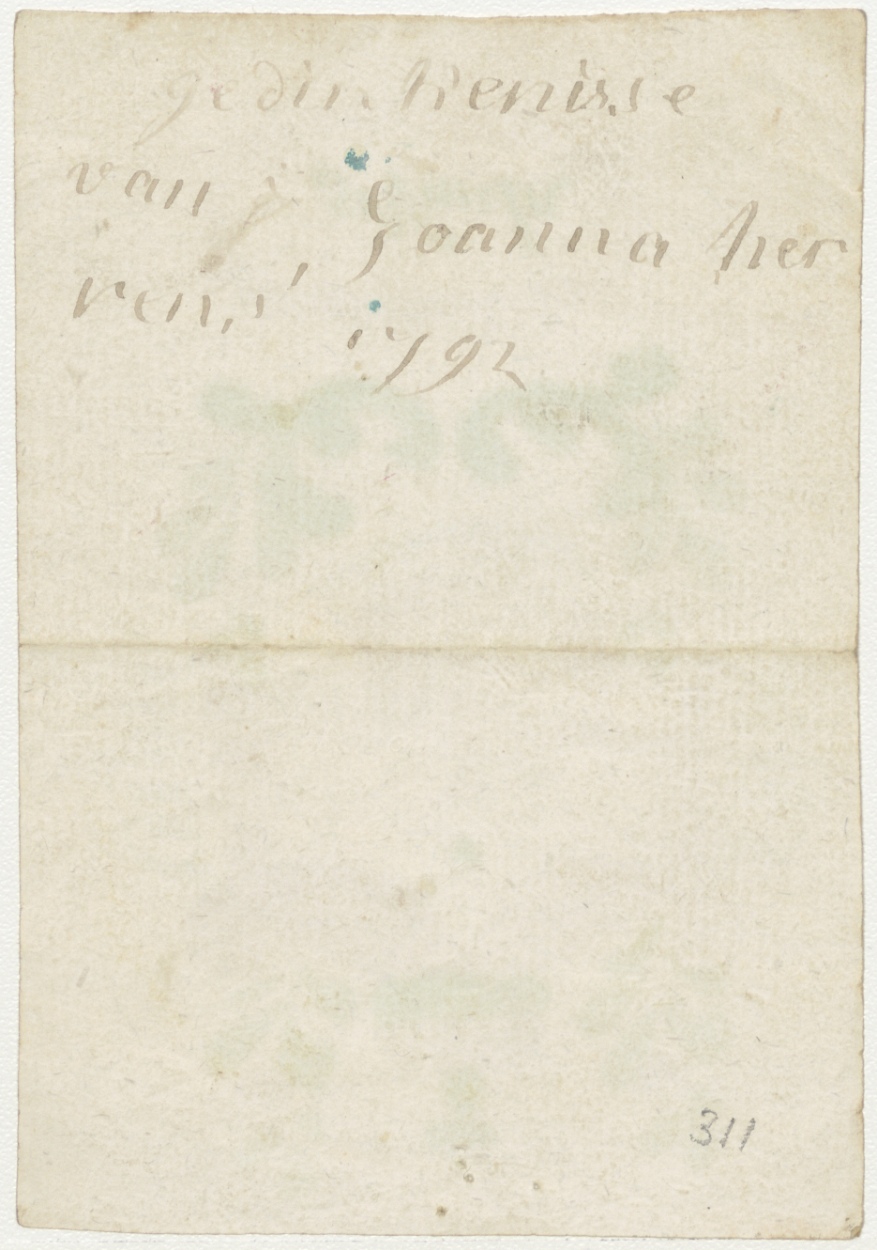 gedinkenisse
van Joanna her
rens,
1792
311